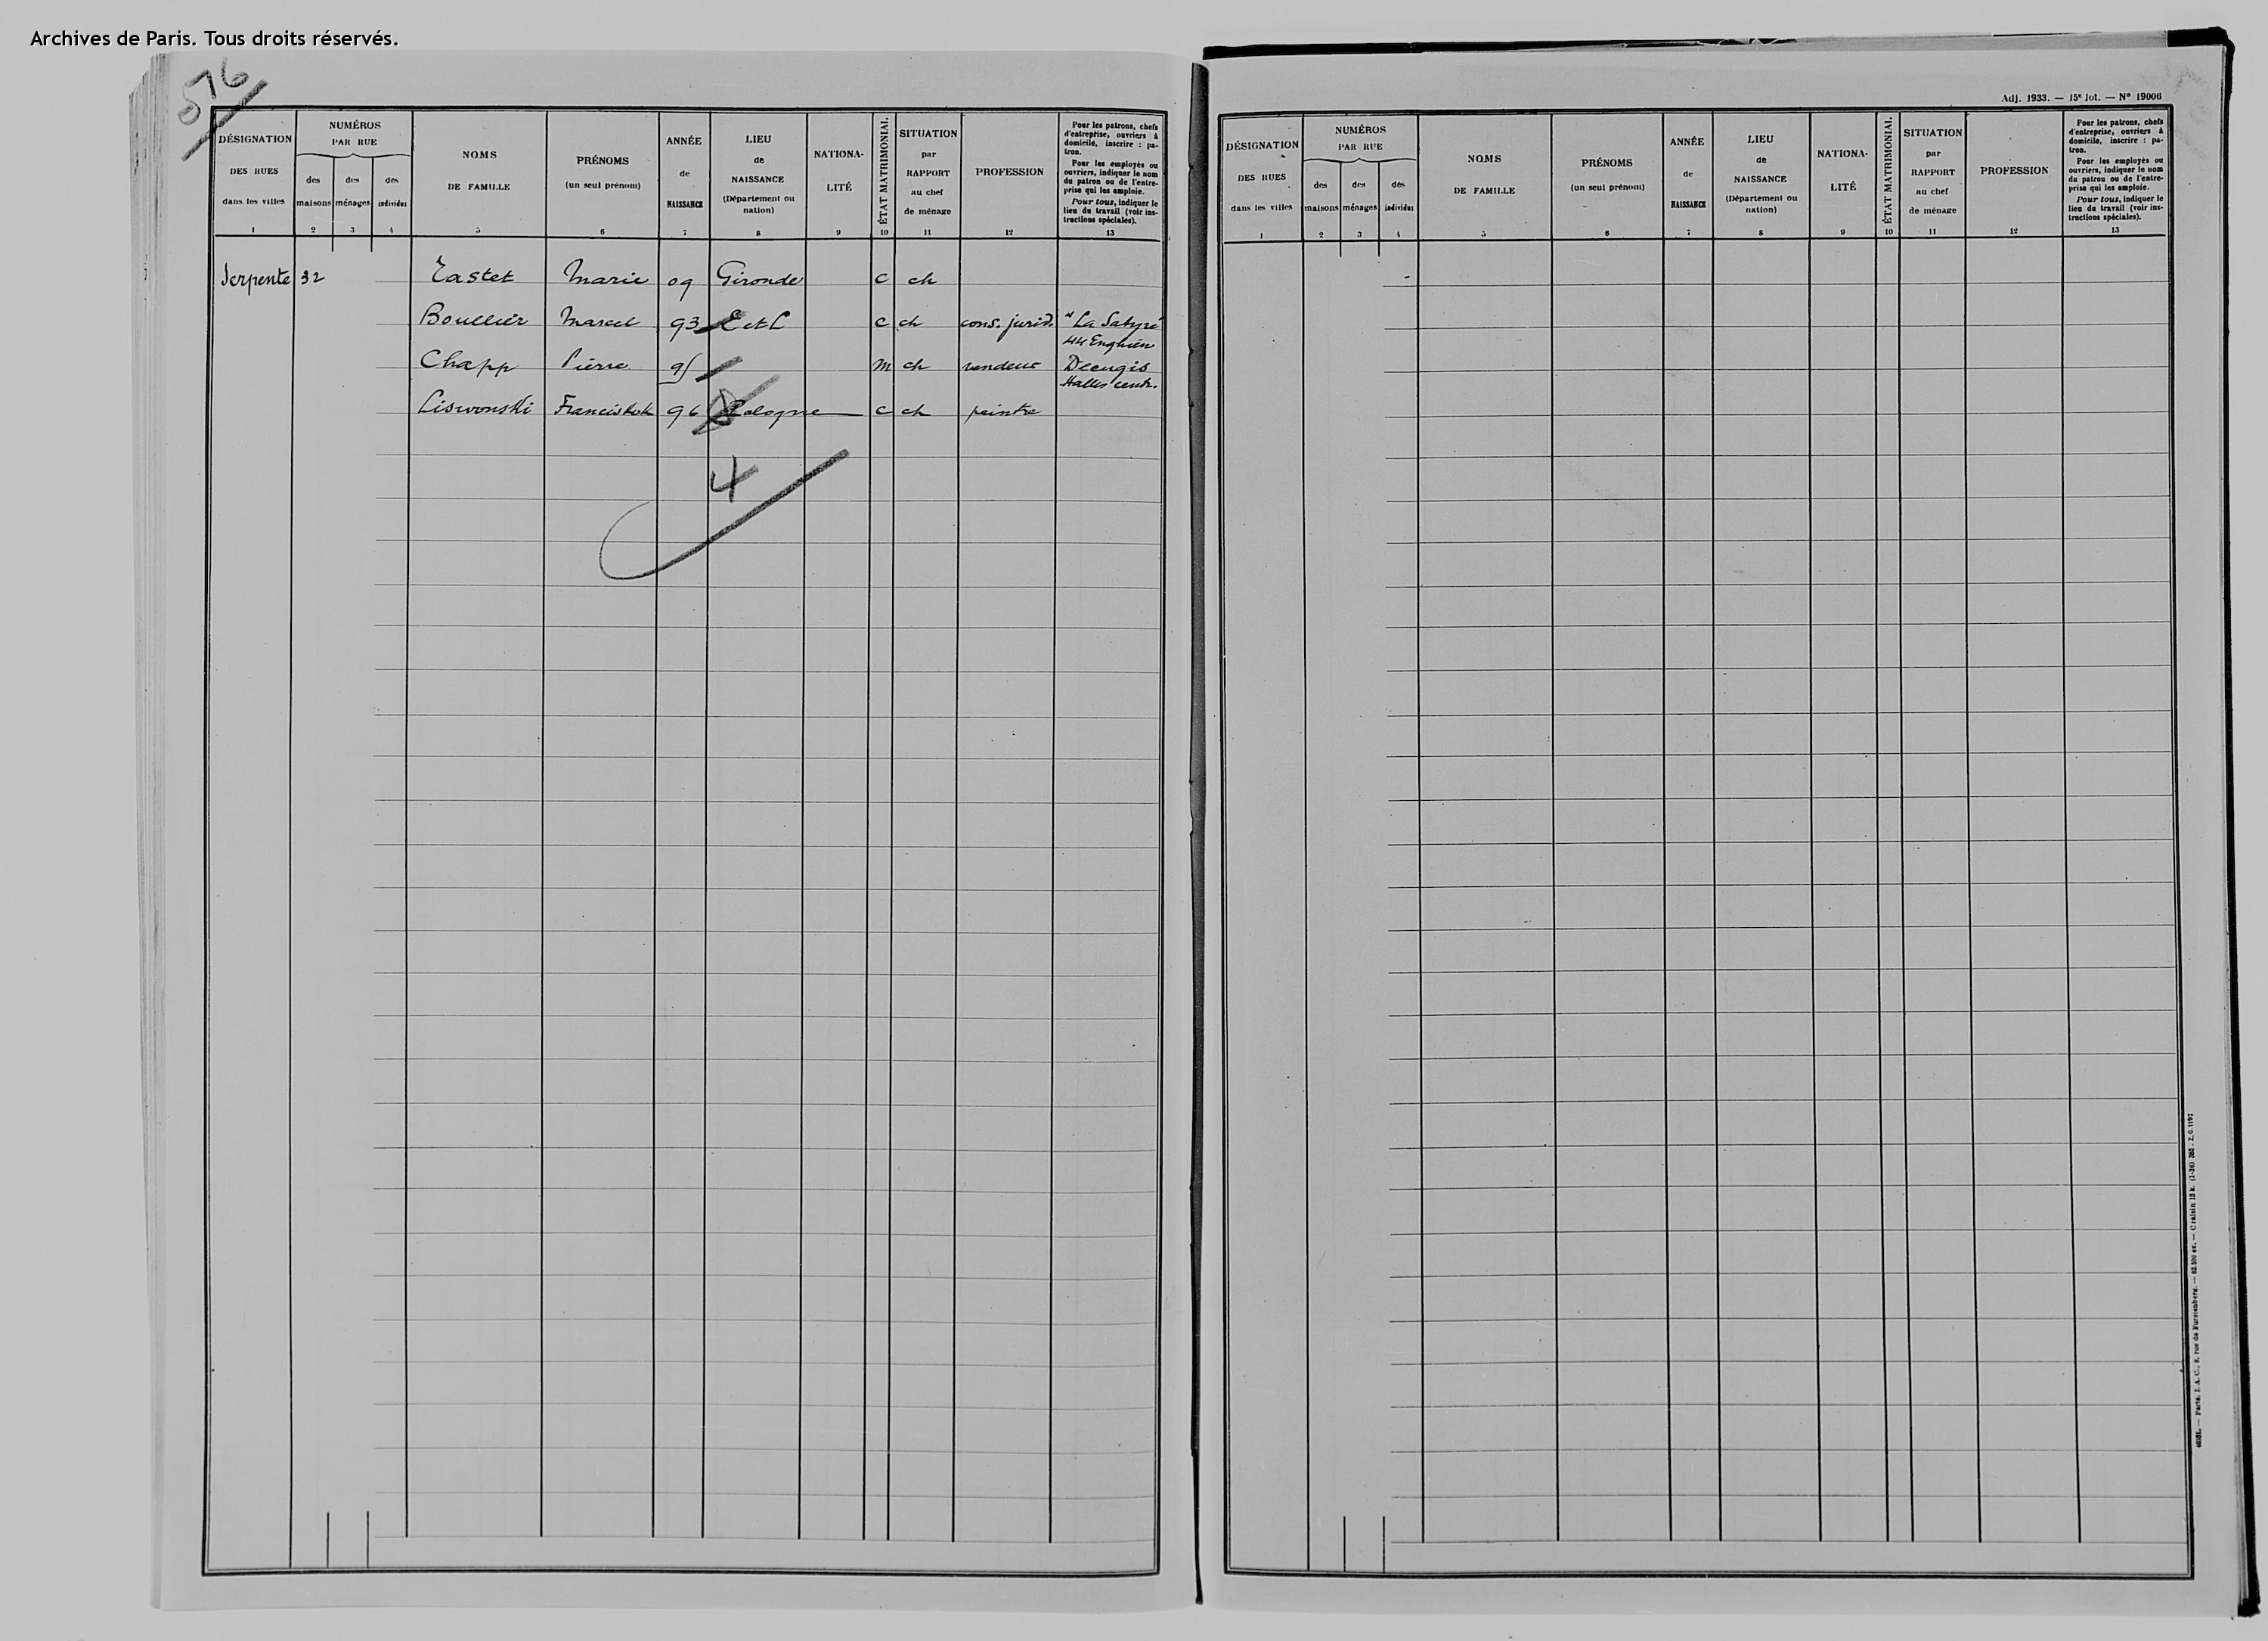 Archives de Paris. Tous droits réservés.
516
DÉSIGNATION
DES RUES
dans les villes
1
NUMÉROS
PAR RUE
des maisons
2
des ménages
3
des individus
4
NOMS
DE FAMILLE
5
PRÉNOMS
(un seul prénom)
6
ANNÉE
de
NAISSANCE
7
LIEU
de
NAISSANCE
(Département ou
nation)
8
NATIONA-
LITÉ
9
ÉTAT MATRIMONIAL
10
SITUATION
par
RAPPORT
au chef
de ménage
11
PROFESSION
12
Pour les patrons, chefs
d'entreprise, ouvriers à
domicile, inscrire : pa-
tron.
Pour les employés ou
ouvriers, indiquer le nom
du patron ou de l'entre-
prise qui les emploie.
Pour tous, indiquer le
lieu du travail (voir ins-
tructions spéciales).
13
Serpente 32 Tastet Marie 09 Gironde c ch
Boullier Marcel 93 E et L c ch cons. jurid. "La Satyre
44 Enghien
Chapp Pierre 95 m ch vendeur Decugis
Halles centr.
Liswonski Franciskok 96 Pologne c ch peintre
4
Adj. 1933. — 15e lot. — N° 19006
DÉSIGNATION
DES RUES
dans les villes
1
NUMÉROS
PAR RUE
des maisons
2
des ménages
3
des individus
4
NOMS
DE FAMILLE
5
PRÉNOMS
(un seul prénom)
6
ANNÉE
de
NAISSANCE
7
LIEU
de
NAISSANCE
(Département ou
nation)
8
NATIONA-
LITÉ
9
ÉTAT MATRIMONIAL
10
SITUATION
par
RAPPORT
au chef
de ménage
11
PROFESSION
12
Pour les patrons, chefs
d'entreprise, ouvriers à
domicile, inscrire : pa-
tron.
Pour les employés ou
ouvriers, indiquer le nom
du patron ou de l'entre-
prise qui les emploie.
Pour tous, indiquer le
lieu du travail (voir ins-
tructions spéciales).
13
— Paris. I. A. C., 8, rue de Furstenberg. — 62.500 ex. — Craisin 15 k. (1-36) 385 . Z.0.1197